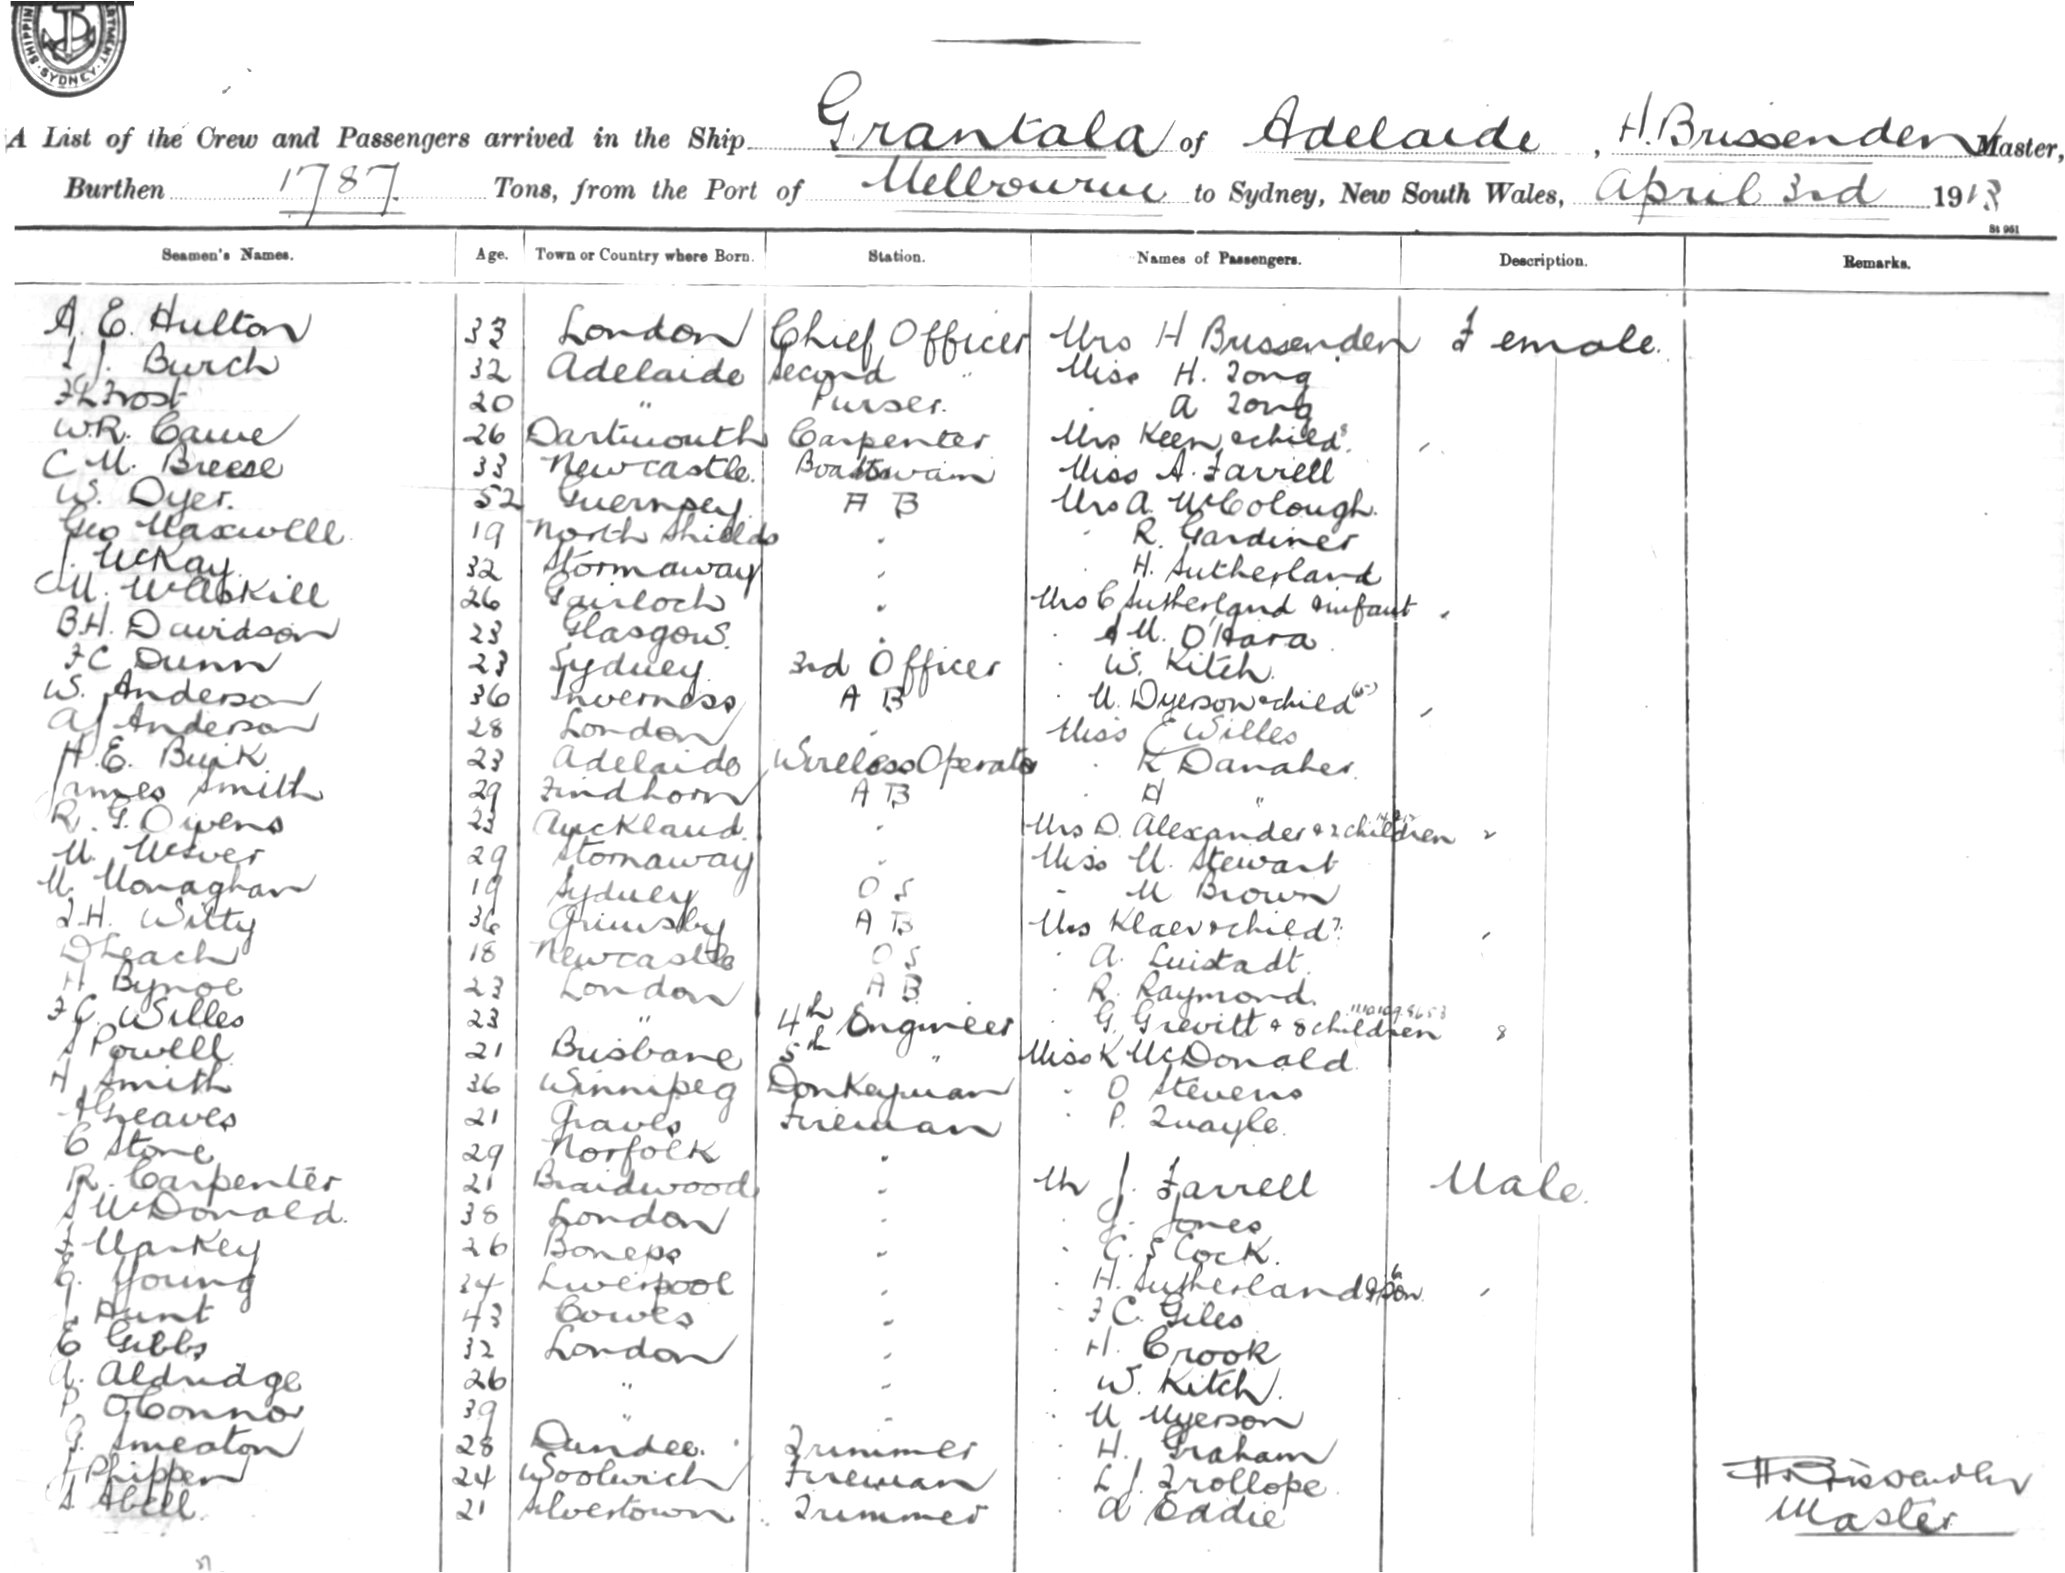 SHIPPIN RTMENT. SYDNEY.
A List of the Crew and Passengers arrived in the Ship Grantala of Adelaide, H. Brissenden Master,
Burthen 1787 Tons, from the Port of Melbourne to Sydney, New South Wales, April 3rd 1913
St 961
Seamen's Names. Age. Town or Country where Born. Station. Names of Passengers. Description. Remarks.
A. E. Hulton 33 London Chief Officer Mrs H Brissenden Female.
J. Burch 32 Adelaide Second " Miss H. Tong
Frost 20 " Purser. A Tong
W.R. Cawe 26 Dartmouth Carpenter Mrs Keen & child 8
C M. Breese 33 Newcastle. Boatswain Miss A. Farrell
W. Dyer. 52 Guernsey A B Mrs A. McColough.
Geo Maxwell 19 North Shields " R. Gardiner
J. McKay 32 Stornaway " H. Sutherland
M. McAskill 26 Gairloch " Mrs C Sutherland & infant "
B.H. Davidson 23 Glasgow. " M. O'Hara
F C Dunn 23 Sydney 3rd Officer " W. Kitch.
W. Anderson 36 Inverness A B " M. Dyerson & child
A J Anderson 28 London " Miss E Willes
H. E. Buik 23 Adelaide Wireless Operator " K Danaher.
James Smith 29 Findhorn A B " H "
R. G. Owens 23 Auckland. " Mrs D. Alexander & 2 children 2
M. McIver 29 Stornaway " Miss M. Stewart
M. Monaghan 19 Sydney O S " M Brown
J.H. Witty 36 Grimsby A B Mrs Klaer & child 7
D Leach 18 Newcastle O S " A. Luistadt.
H Bynoe 23 London A B " R. Raymond.
F C. Willes 23 " 4th Engineer " G. Grevitt & 8 children 8
Powell 21 Brisbane 5th " Miss K McDonald.
H Smith 36 Winnipeg Donkeyman " O Stevens
A Greaves 21 Graves Fireman " P. Quayle.
C Stone 29 Norfolk " 
R. Carpenter 21 Braidwood " Mr J. Farrell Male.
McDonald. 38 London " J. Jones
F Markey 26 Boness " C. E Cock.
G. Young 34 Liverpool " H. Sutherland & son 6
J Hunt 43 Cowes " F C. Giles
E Gibbs 32 London " H. Crook
A. Aldridge 26 " " W. Kitch.
P. O'Connor 39 " " M Myerson
G. Smeaton 28 Dundee. Trimmer " H. Graham
J Phippen 24 Woolwich Fireman " L J. Trollope. H Brissenden
A Abell. 21 Silvertown Trimmer " A Eddie Master